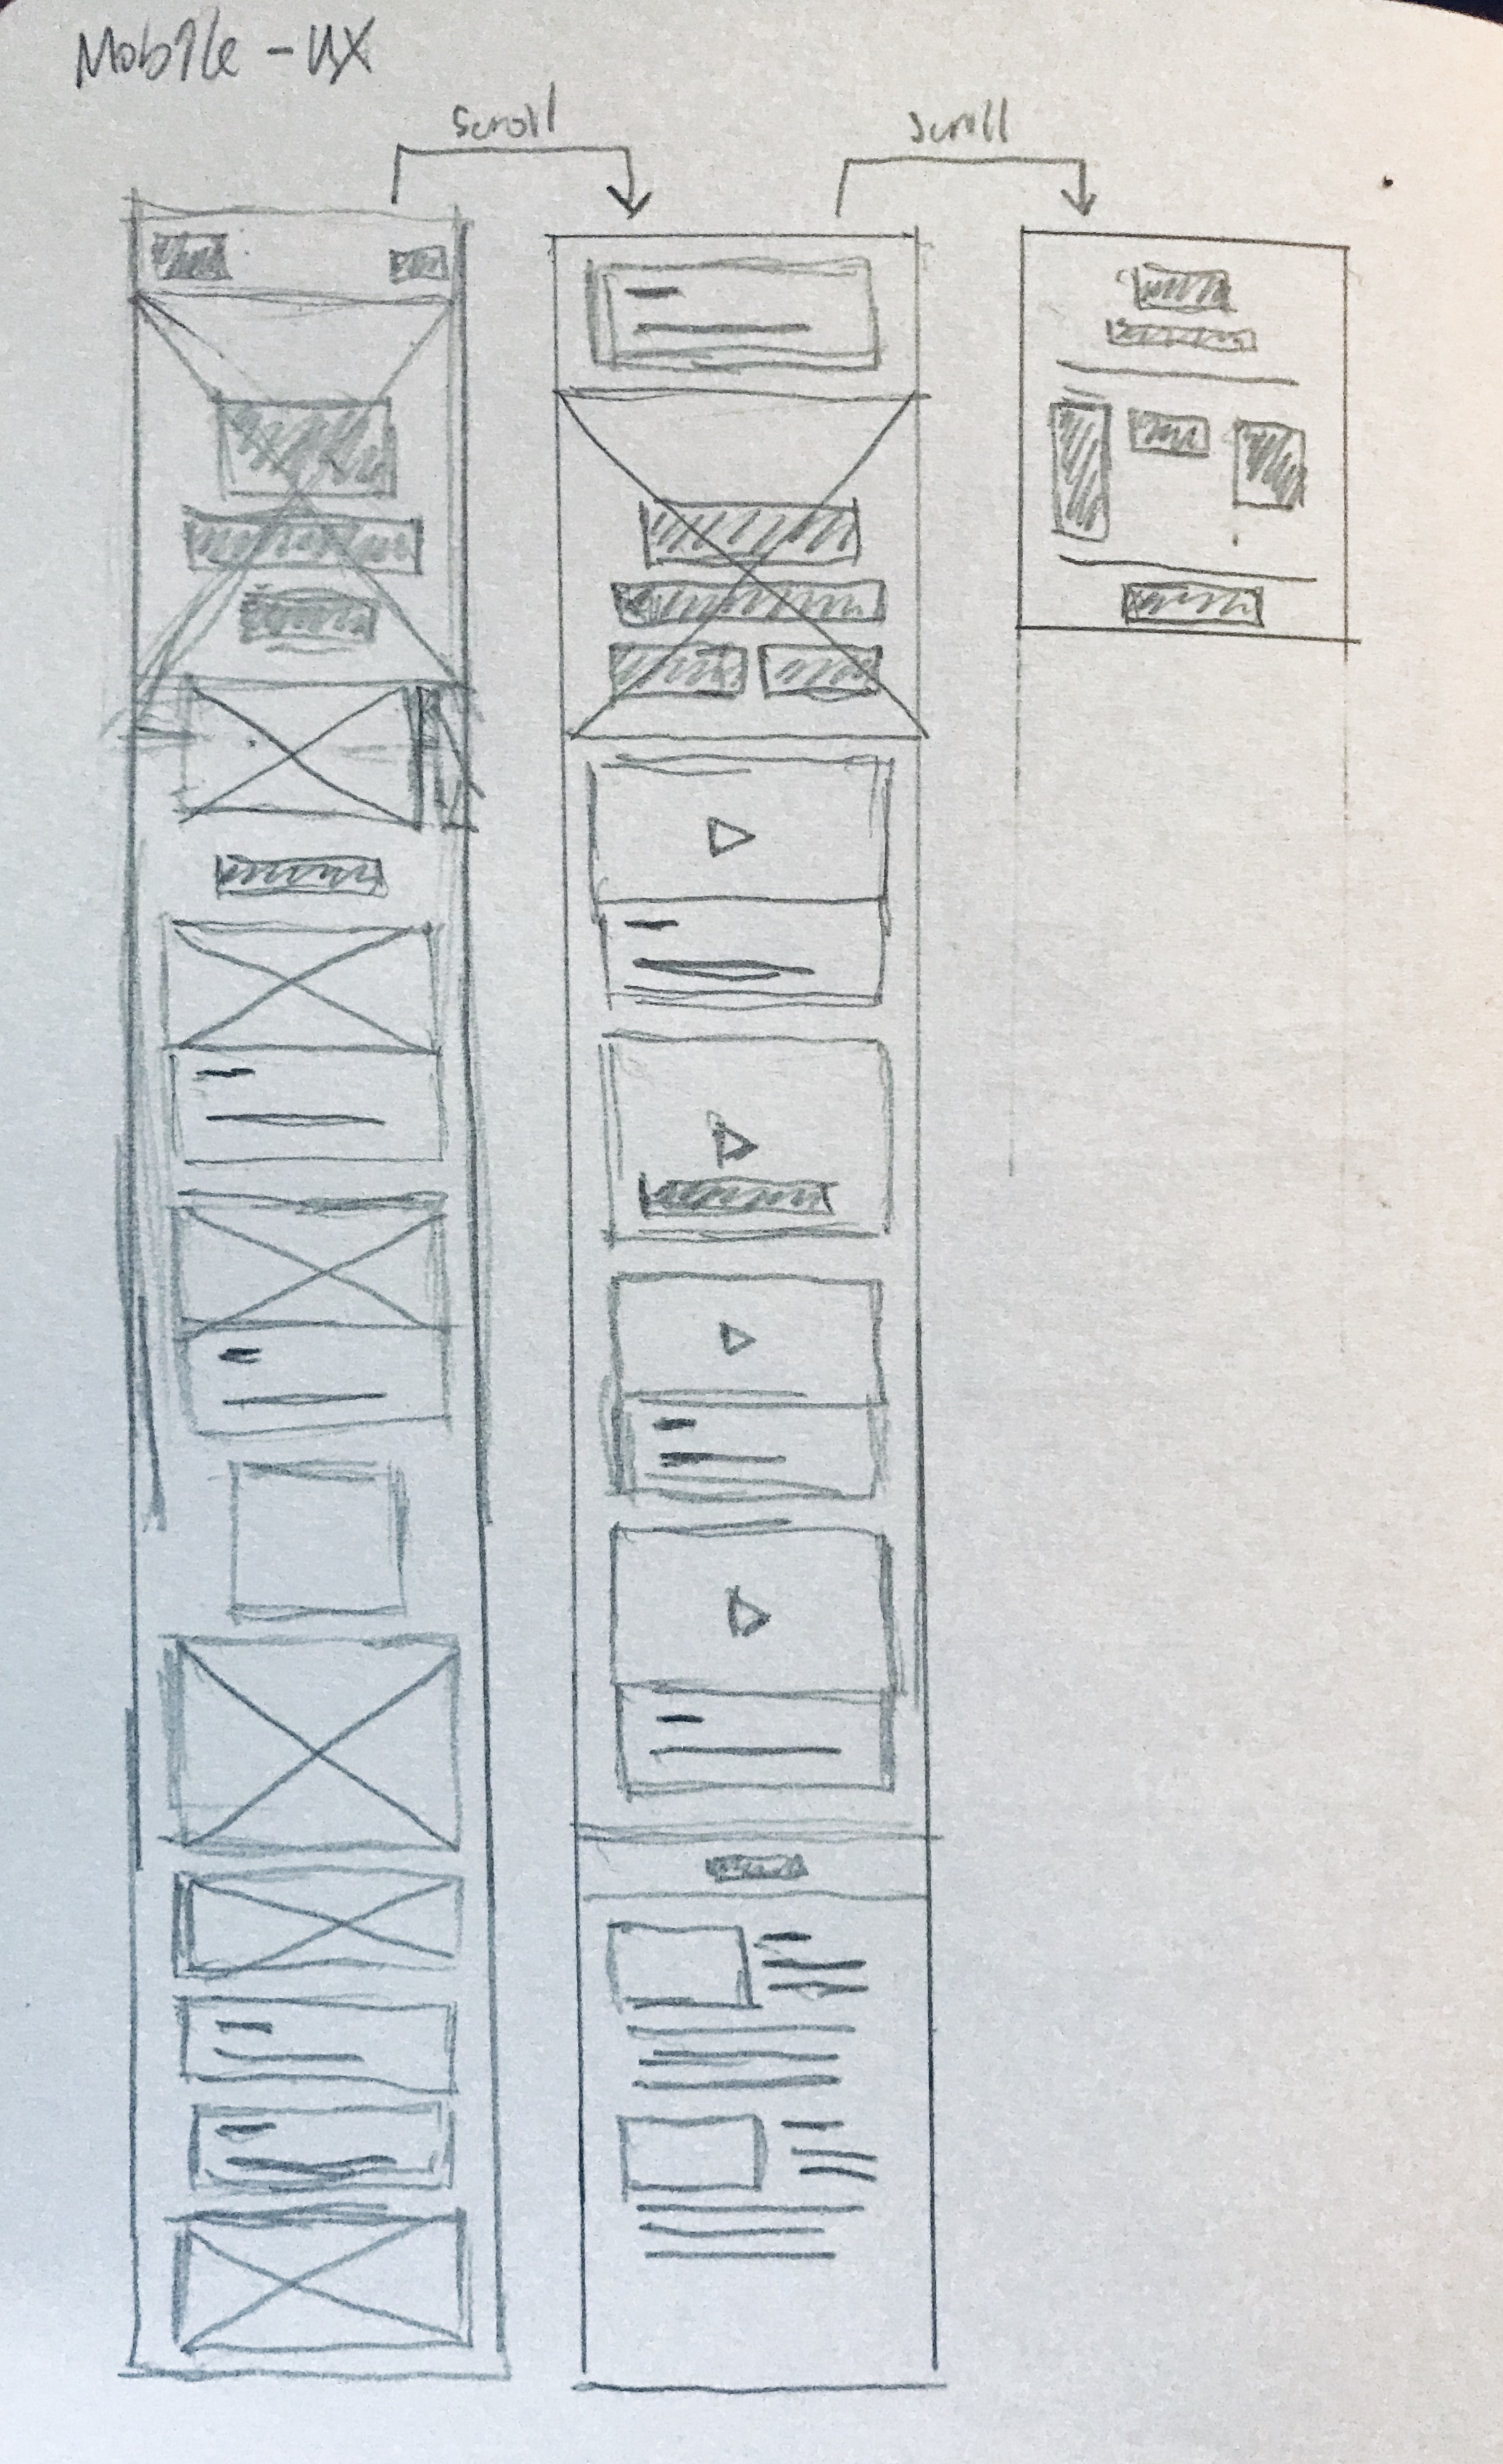 Mobile - UX
Scroll
Scroll